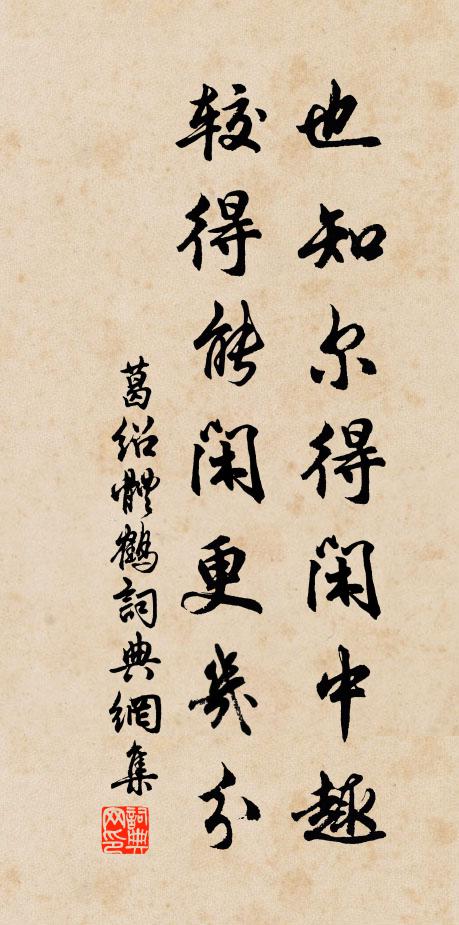 也知尔得闲中趣
较得能闲更几分
葛绍體鶴詞典網集
詞典网印